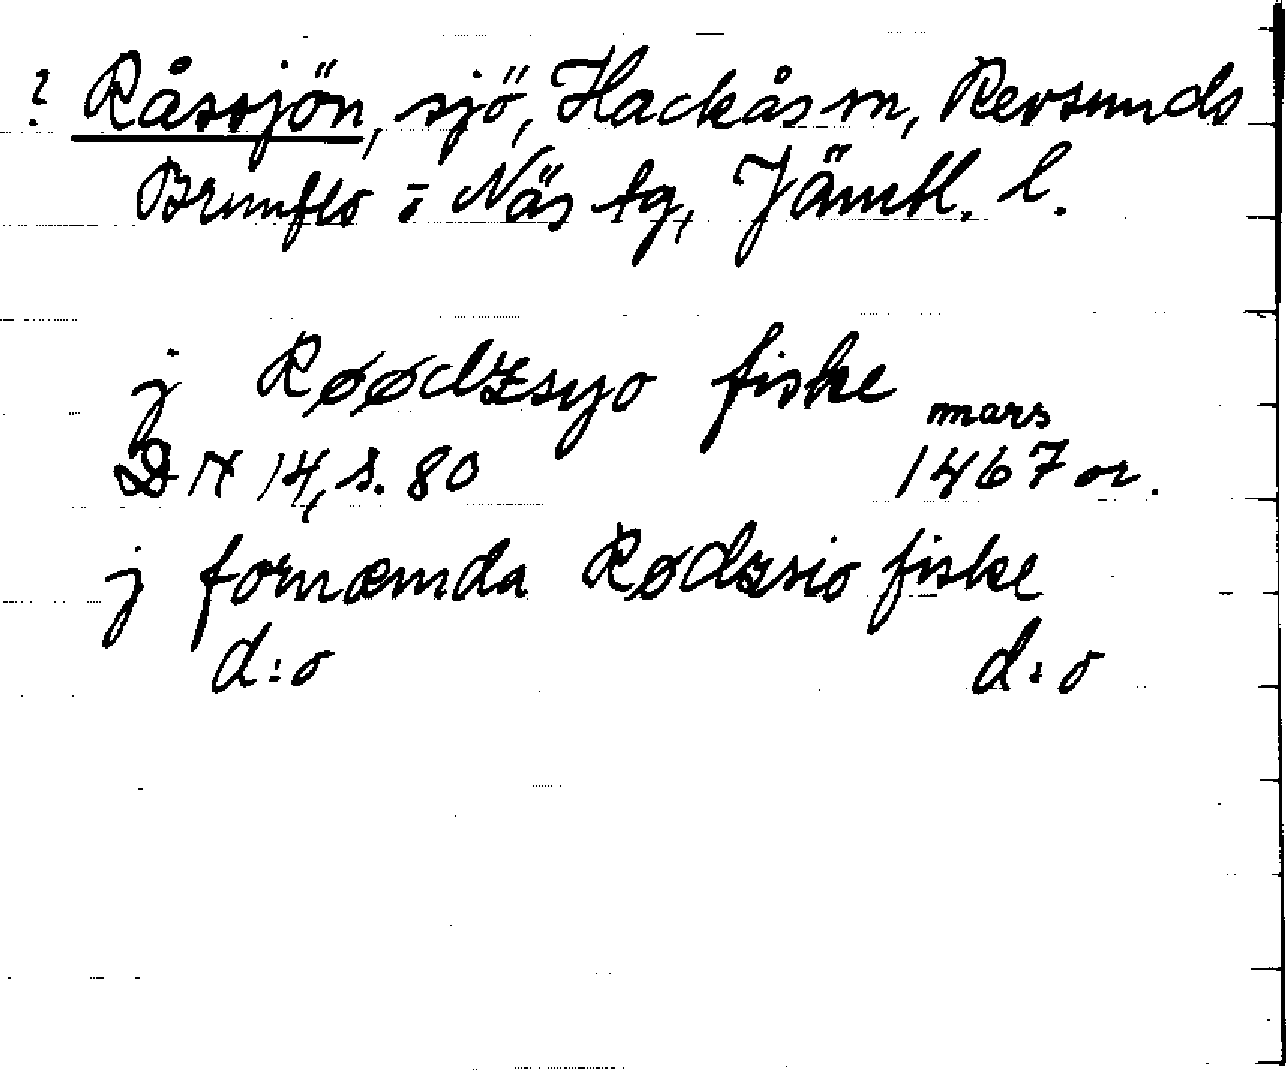 ? Råssjön, sjö, Hackås sn, Revsunds
Brunflo o Näs tg, Jämtl. l.
j Røødzsyo fiske
mars
DN 14, s. 80 1467 or.
j fornæmda Rødzsio fiske
d:o d:o